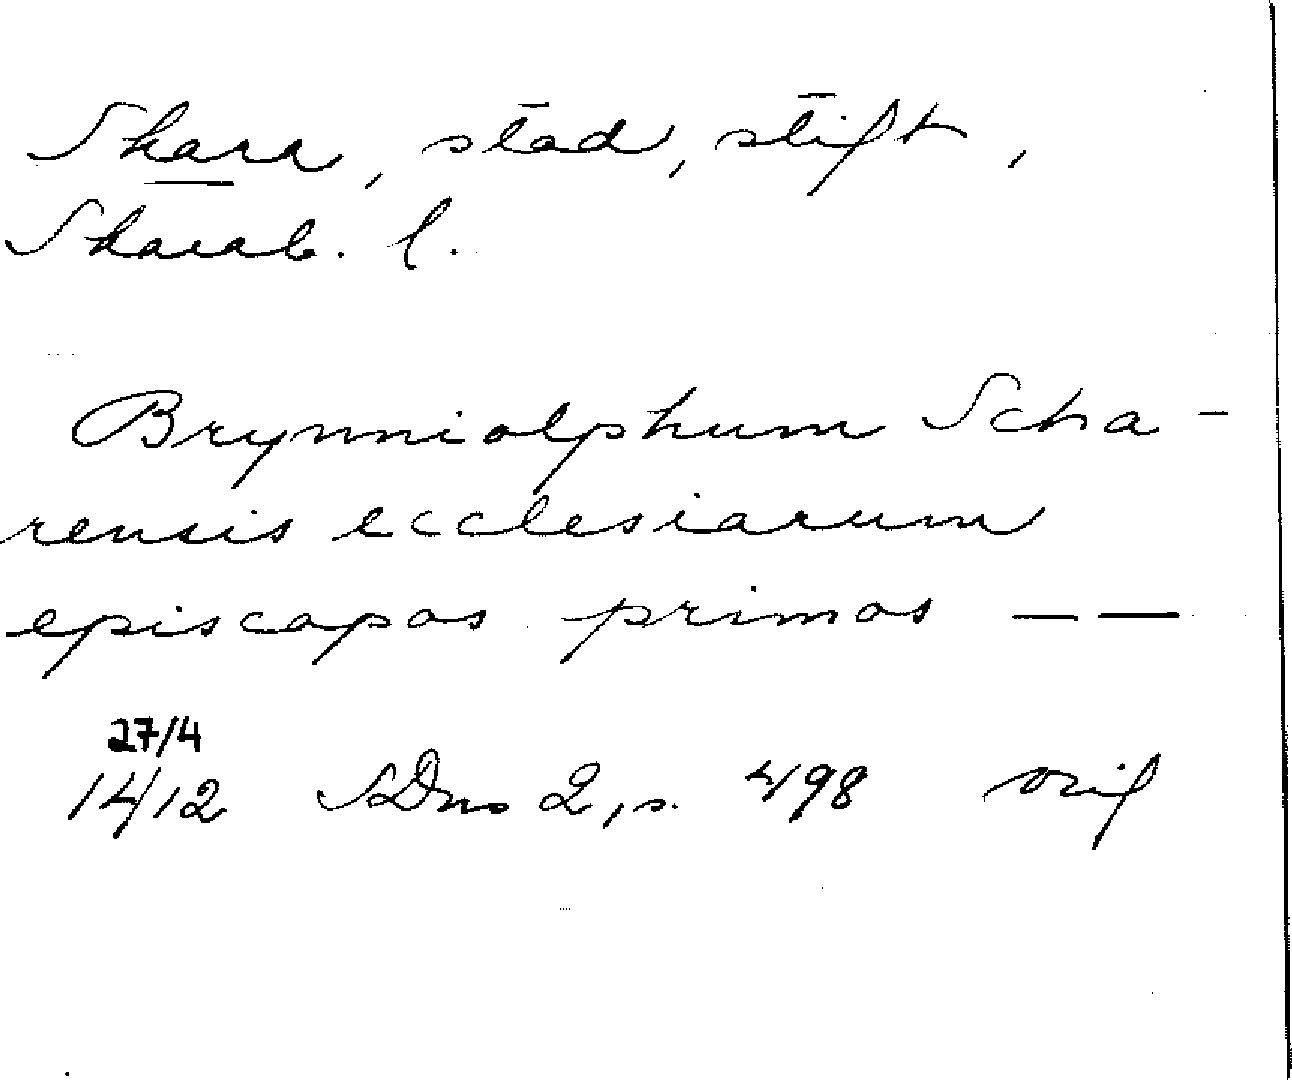 Skara, stad, stift,
Skarab. l.
Brynniolphum Scha-
rensis ecclesiarum
episcopos primos — —
27/4
14/12 SDns 2, s. 498 orig